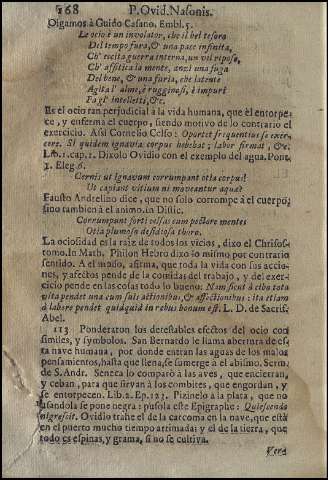 168 P. Ovid. Nasonis.
Digamos à Guido Casano. Embl. 5.
Le ocio è un involator, che il bel tesoro
Del tempo fura, & una pace infinita,
Ch' escita guerra interna, un vil riposo,
Ch' assitica la mente, anzi una fuga
Del bene, & una furia, che latente
Agita l' alme, è rugginoso, è impuri
Fa gl' intelletti, &c.
Es el ocio tan perjudicial à la vida humana, que èl entorpe-
ce, y enferma el cuerpo, siendo motivo de lo contrario el
exercicio. Assi Cornelio Celso: Oportet frequentius se exer-
cere. Si quidem ignavia corpus hebebat; labor firmat, &c.
Lib. 1. cap. 1. Dixolo Ovidio con el exemplo del agua. Pont.
1. Eleg. 6.
Cernis ut ignavum corrumpant otia corpus?
Ut capiant vitium ni moveantur aquæ?
Fausto Andrelino dice, que no solo corrompe à el cuerpo;
sino tambien à el animo. in Distic.
Corrumpunt forti celsas cum pectore mentes
Otia plumoso desidiosa thoro.
La ociosidad es la raiz de todos los vicios, dixo el Chrisos-
tomo. in Math. Philon Hebro dixo lo mismo por contrario
sentido. A el modo, afirma, que toda la vida con sus accio-
nes, y afectos pende de la comida: assi del trabajo, y del exer-
cicio pende en las cosas todo lo bueno. Nam sicut à cibo tota
vita pendet una cum suis actionibus, & affectionibus: ita etiam
à labore pendet quidquid in rebus bonum est. L. D. de Sacris.
Abel.
113 Ponderaron los detestables efectos del ocio con
similes, y symbolos. San Bernardo le llama abertura de es-
ta nave humana, por donde entran las aguas de los malos
pensamientos, hasta que llena, se sumerge à el abismo. Serm.
de S. Andr. Seneca lo comparò à las aves, que encierran,
y ceban, para que sirvan à los combites, que engordan, y
se entorpecen. Lib. 2. Ep. 123. Pizinelo à la plata, que no
usandola se pone negra: pusola este Epigraphe: Quiescendo
nigrescit. Ovidio trahe el de la carcoma en la nave, que està
en el puerto mucho tiempo arrimada: y el de la tierra, que
todo es espinas, y grama, si no se cultiva.
Verd